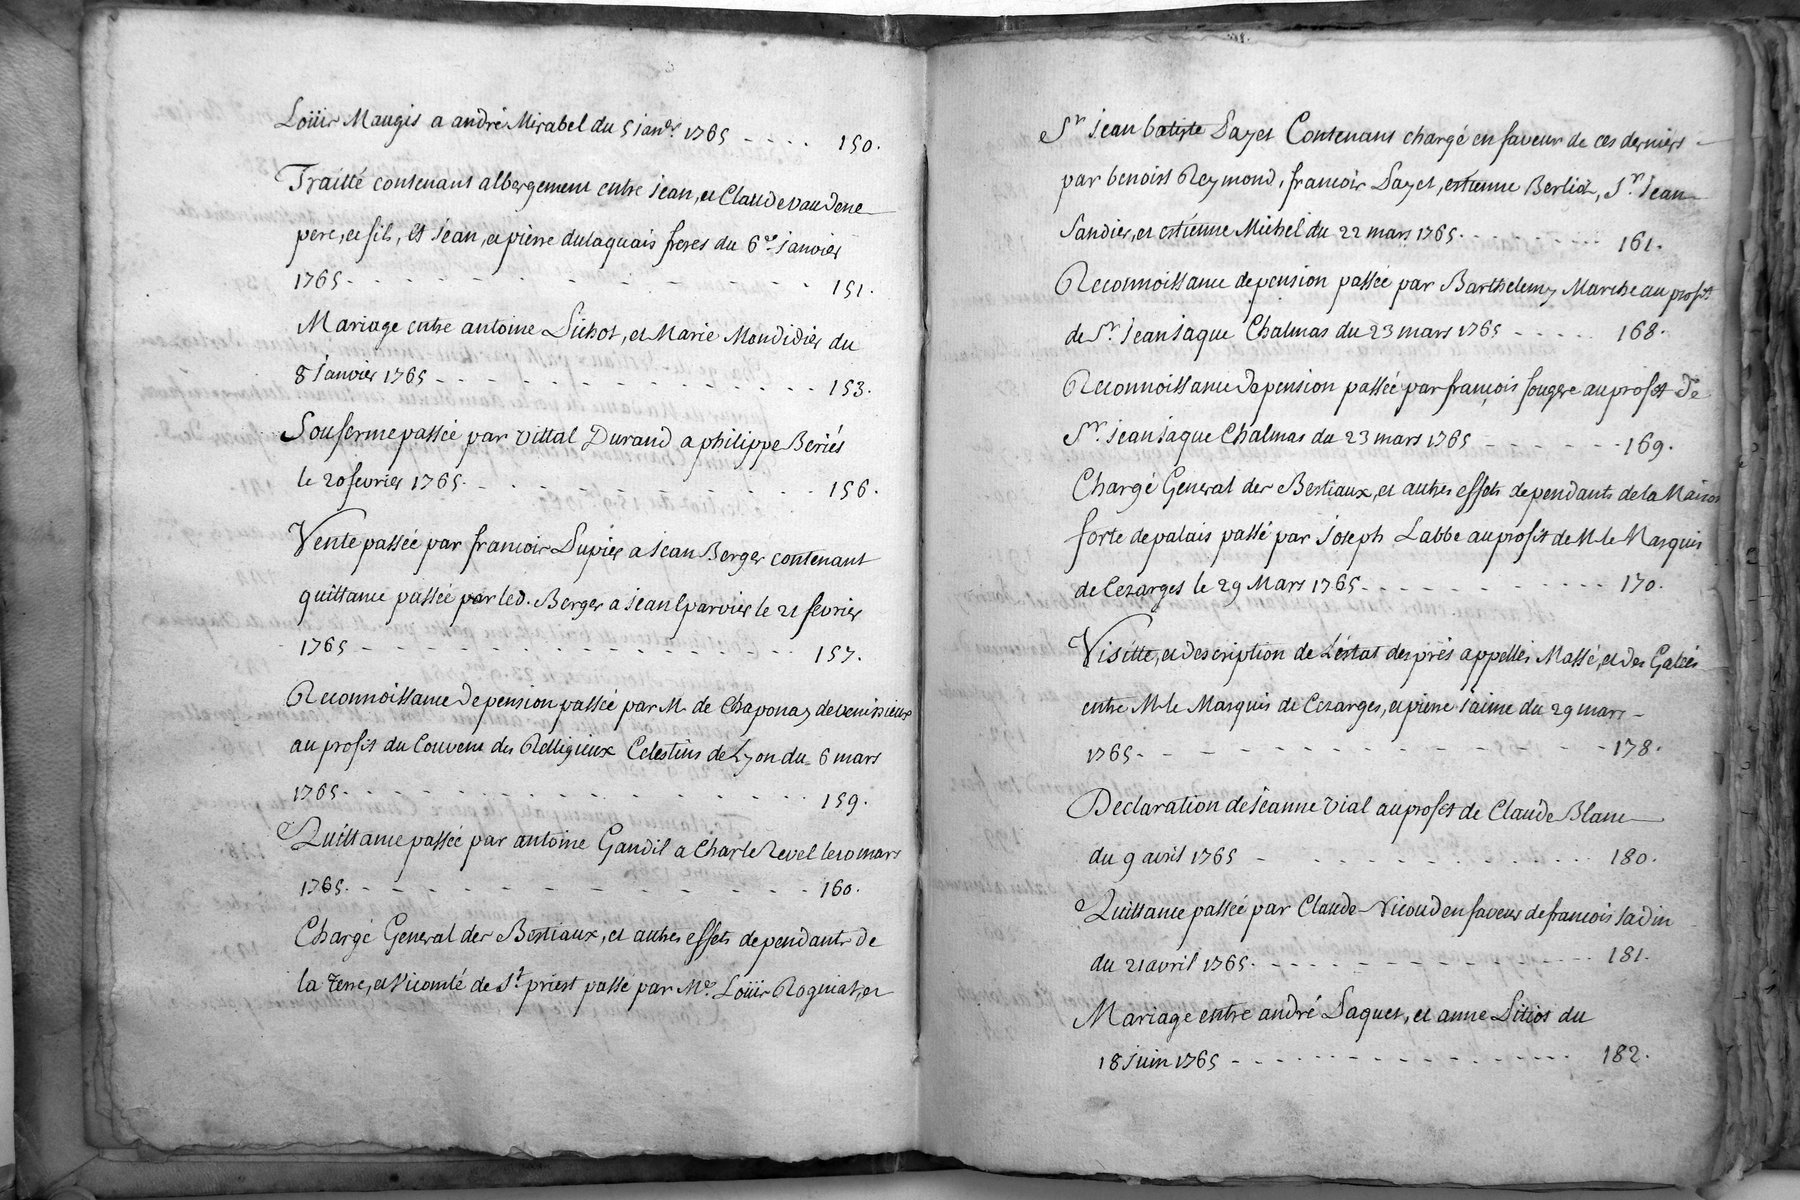 Loüis Maugis a andré Mirabel du 5 janr. 1765 - - - - 150.
Traitté contenant albergement entre jean, et Claude vaudene
pere, et fils, et jean, et pierre dulaquais freres du 6e. janvier
1765 - - - - - - - - - - 151.
Mariage entre antoine Pichot, et Marie Mondidier du
8 janvier 1765 - - - - - - - - - - - - 153.
Sousferme passée par vittal Durand a philippe Beriés
le 20 fevrier 1765 - - - - - - - - - - 156.
Vente passée par francois Dupier a jean Berger contenant
quittance passée par led. Berger a jean Eparvier le 21 fevrier
1765 - - - - - - - - - - - - - - - 157.
Reconnoissance de pension passée par M. de Chaponay de venissieux
au profit du Couvent des Relligieux Celestins de Lyon du 6 mars
1765 - - - - - - - - - - - - 159.
Quittance passée par antoine Gandil a Charle Revel le 10 mars
1765 - - - - - - - - - - - - 160.
Chargé General des Bestiaux, et autres effets dependants de
la Terre, et vicomté de St. priest passé par Me. Loüis Rogniat, et
Sr. jean batiste Payet Contenant chargé en faveur de ces derniers
par benoist Reymond, francois Payet, estienne Berliot, Sr. jean
Sandier, et estienne Michel du 22 mars 1765 - - - - - - - 161.
Reconnoissance de pension passée par Barthelemy Marche au profit
de Sr. jean jaque Chalmas du 23 mars 1765 - - - - - 168.
Reconnoissance de pension passée par françois fougere au profit de
Sr. jean jaque Chalmas du 23 mars 1765 - - - - - - - 169.
Chargé General des Bestiaux, et autres effets dependants de la Maison
forte de palais passé par joseph Labbe au profit de M. le Marquis
de Cezarges le 29 Mars 1765 - - - - - - - - - - - 170.
Visitte, et description de L'estat des prés appellés Massé, et des Galées
entre M. le Marquis de Cezarges, et pierre jaime du 29 mars -
1765 - - - - - - - - - - - - - - 178.
Declaration de jeanne vial au profit de Claude Blanc
du 9 avril 1765 - - - - - - - - - - - 180.
Quittance passée par Claude Nicoud en faveur de francois jadin
du 21 avril 1765 - - - - - - - - - - - - - - 181.
Mariage entre andré Paquet, et anne Pitiot du
18 juin 1765 - - - - - - - - - - - - - - 182.